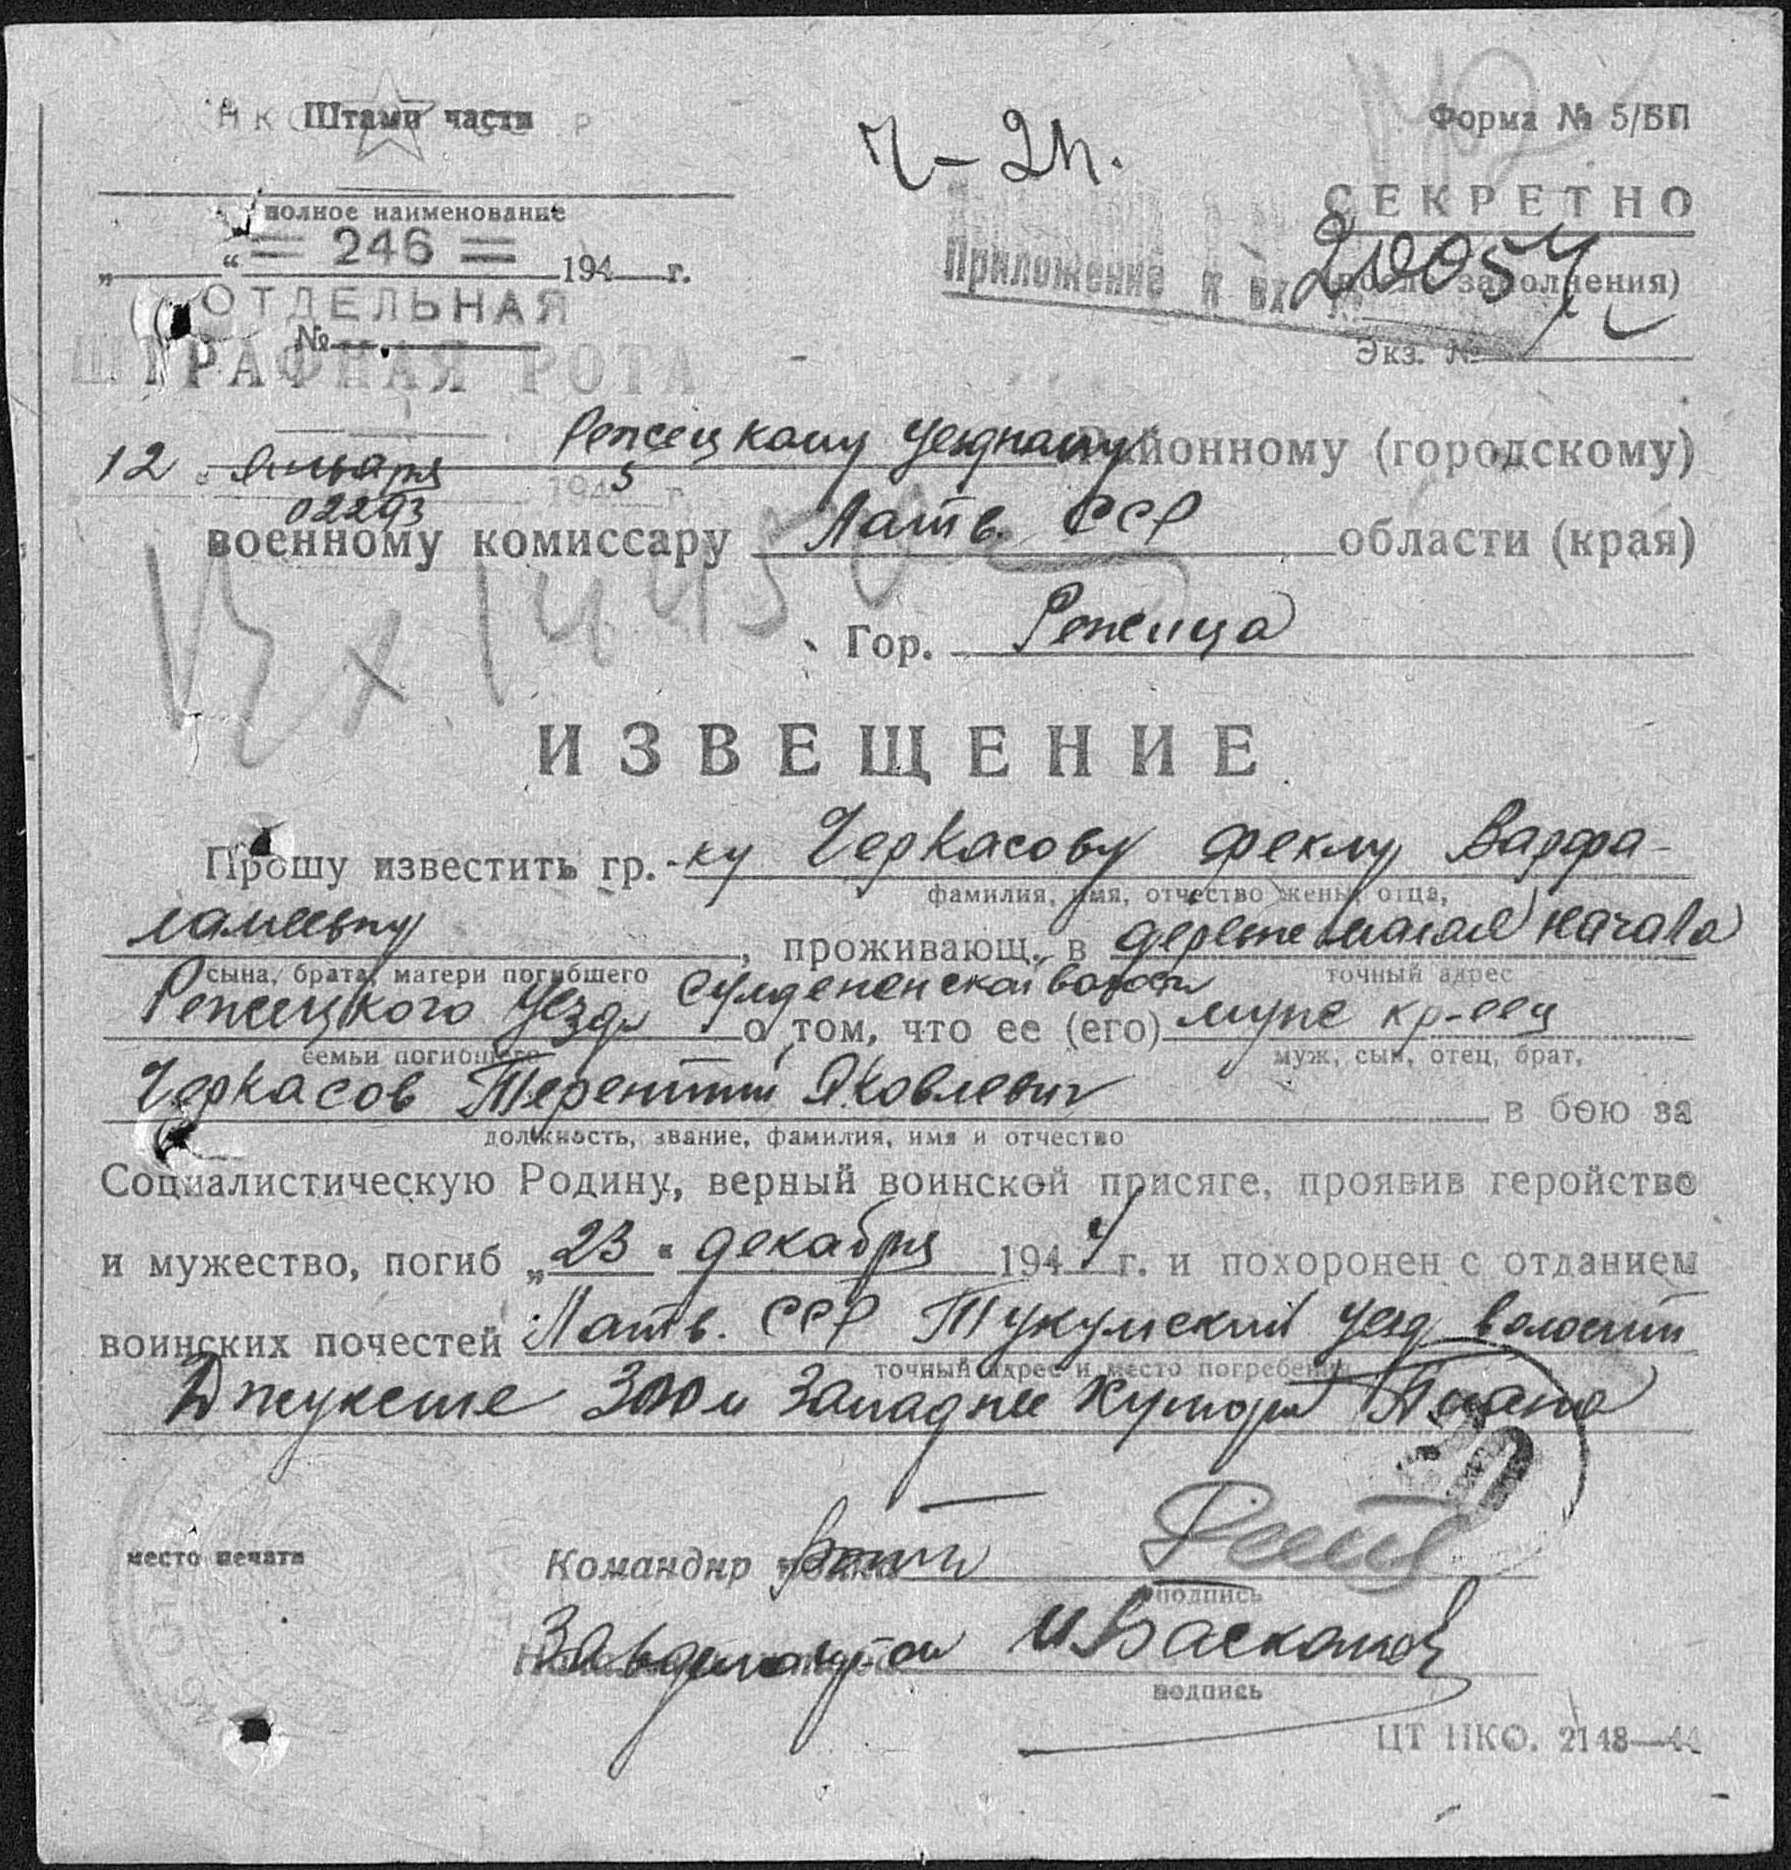 Штамп части
Ч-2н.
Форма № 5/БП
СЕКРЕТНО
полное наименование
= 246 =
„ “ 194 г.
Приложение к вх 20054
заполнения)
ОТДЕЛЬНАЯ
№
Экз. №
ШТРАФНАЯ РОТА
Режецкому уездному Районному (городскому)
12 января 1945 г.
02293
военному комиссару Латв. ССР области (края)
Вх 14450
Гор. Режица
ИЗВЕЩЕНИЕ
Прошу известить гр.-ку Черкасову Феклу Варфа-
фамилия, имя, отчество жены, отца,
ламеевну, проживающ. в деревне малая Начала
сына, брата, матери погибшего
точный адрес
Режецкого уезда о том, что ее (его) муж кр-еец
семьи погибшего
муж, сын, отец, брат,
Черкасов Терентий Яковлевич в бою за
должность, звание, фамилия, имя и отчество
Социалистическую Родину, верный воинской присяге, проявив геройство
и мужество, погиб „23“ декабря 1944 г. и похоронен с отданием
воинских почестей Латв. ССР Тукумский уезд волости
точный адрес и место погребения
Джуксте 300 м Западнее Хутора
место печати
Командир роты
подпись
подпись
ЦТ НКО. 2148—44